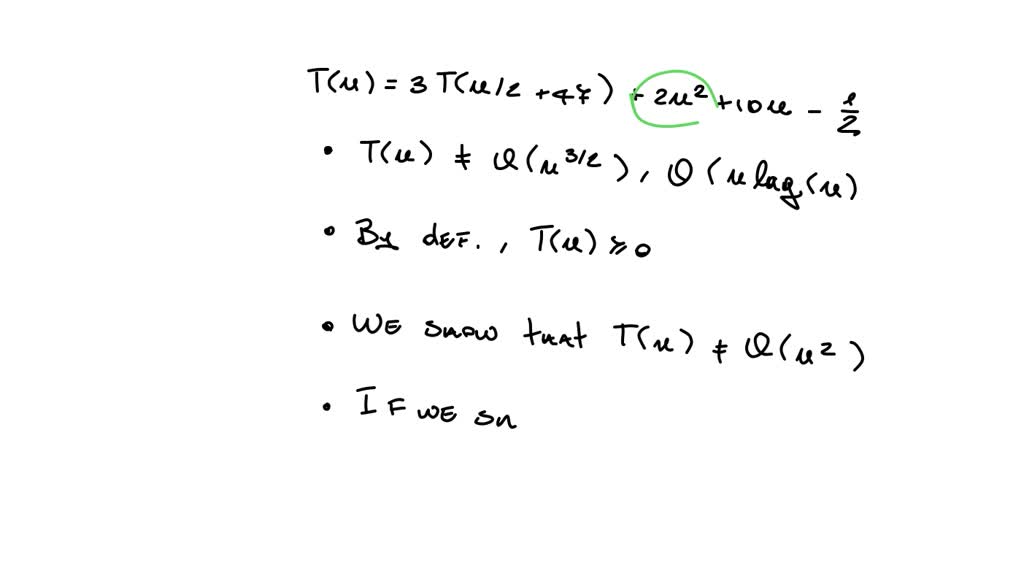 T(n) = 3 T(n/2 + 47) + 2n² + 10n - 1/2
• T(n) ≠ O(n^3/2), O(n log(n)
• By def., T(n) ≥ 0
• We show that T(n) ≠ O(n²)
• If we sh